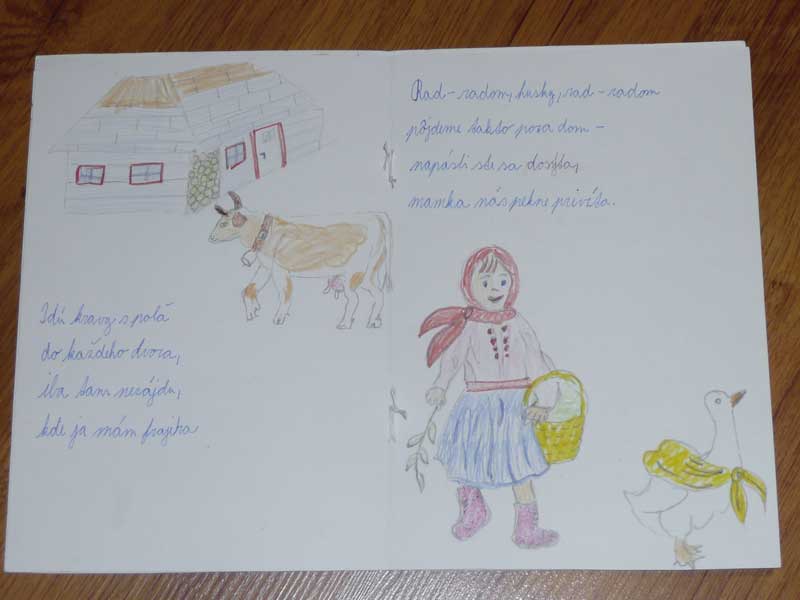 Idú kravy s polá
do každeho dvora,
iba tam nezájdu,
kde ja mám frajira
Rad-radom, husky, rad-radom
pôjdeme takto poza dom-
napásli ste sa dosýta,
mamka nás pekne privíta.